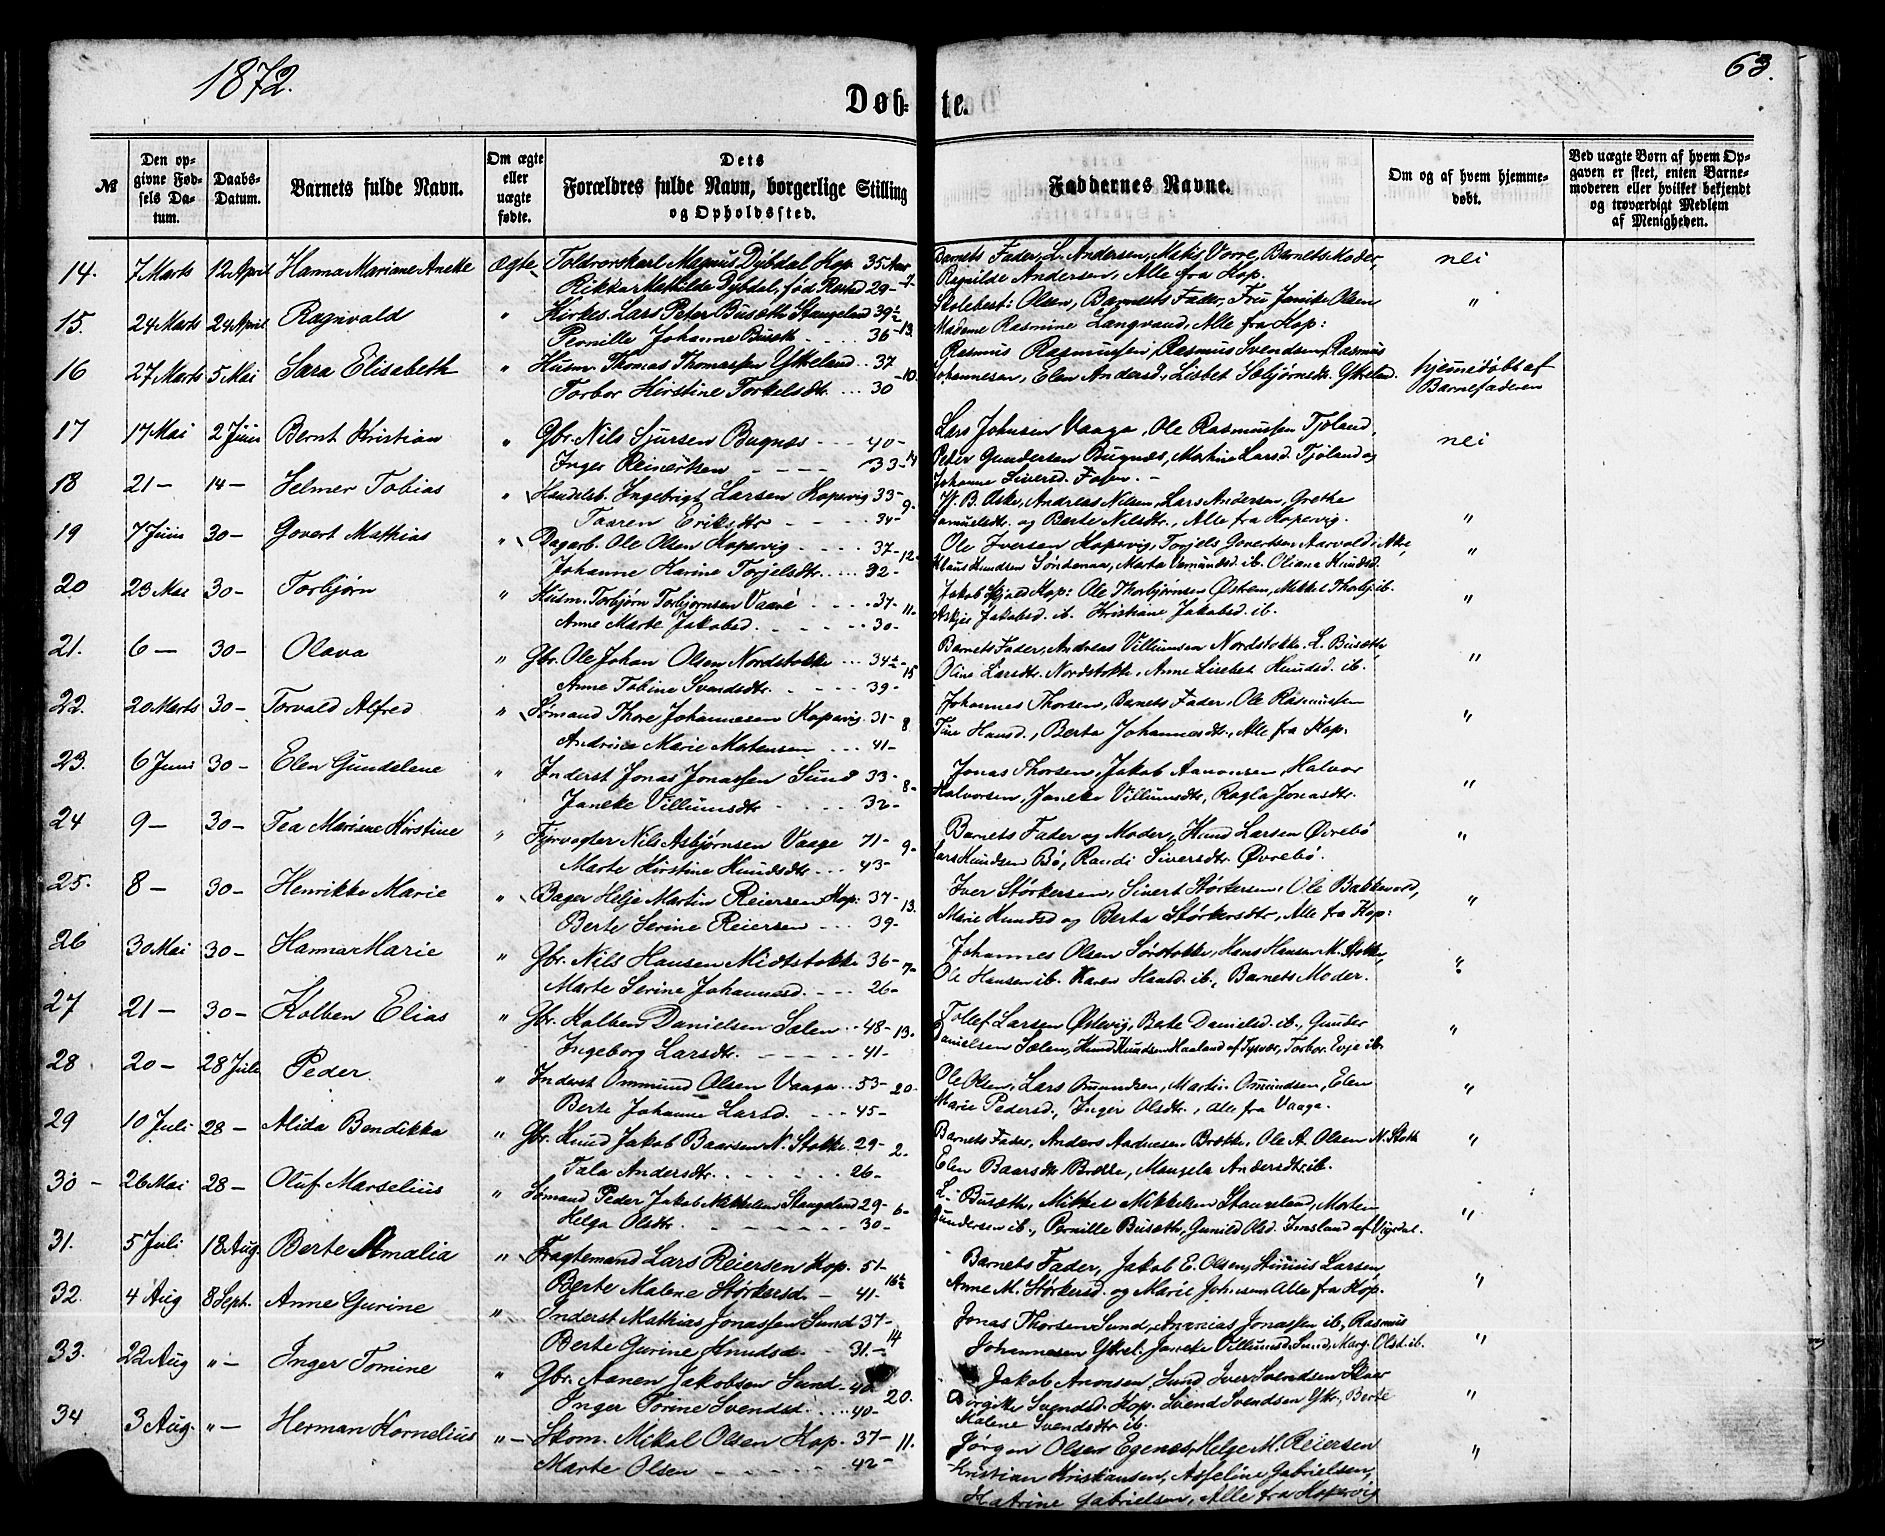 1872.
63.
Døbte.
№
Den opgivne Fødsels Datum.
Daabs-Datum.
Barnets fulde Navn.
Om ægte eller uægte fødte.
Dets Forældres fulde Navn, borgerlige Stilling og Opholdssted.
Faddernes Navne.
Om og af hvem hjemmedøbt.
Ved uægte Børn af hvem Opgaven er skeet, enten Barnemoderen eller hvilket bekjendt og troværdigt Medlem af Menigheden.
14. 7 Marts 12 April Hanna Mariane Aneke ægte Toldrorskarl Magnus Dybdal Kop. 35 Aar
Rikka Mathilde Dybdal, fød Rested 29- 7-
Barnets Fader, L. Andersen, Barnets Moder,
Ragnilde Andersen, Alle fra Kop. nei
15. 24 Marts 24 April Ragnvald " Kirkes. Lars Peter Busæth Stangeland 39½
Pernille Johanne Busæth 36- 13.
Skolebest: Olsen, Barnets Fader, Fru Janike Olsen
Madame Rasmine Langvand, Alle fra Kop: "
16 27 Marts 5 Mai Sara Elisabeth " Husm. Thomas Thomassen Ytreland 37
Torbor Kirstine Torkelsdtr. 30 10.
Rasmus Rasmussen, Rasmus Svendsen, Rasmus
Johannesen, Elen Andersd., Lisbet Sæbjørnsdtr. Ytreland. hjemmedøbt af
Barnefaderen
17 17 Mai 2 Juni Bernt Kristian " Gbr. Nils Sjursen Bugnæs 40-
Inger Reinertsen 33- 14
Lars Johnsen Vaaga, Ole Rasmussen Tjøland,
Peter Gundersen Bugnæs, Martine Larsd. Tjøland og
Johanne Siversd. Fosen. - nei
18 21- 14- Selmer Tobias " Handelsb. Ingebrigt Larsen Kopervig 33-
Taaren Eriksdtr 34- 9.
B. Aske, Andreas Nilsen, Lars Andersen, Grethe
Samuelsdtr. og Berte Nilsdtr., Alle fra Kopervig. "
19 7 Juni 30- Govert Mathias " Dagarb. Ole Olsen Kopervig 37-
Johanne Karine Torjelsdtr. 32- 12.
Ole Iversen Kopervig, Torjels Govertsen Aarvold
Klaus Knudsen Søndenaa, Marta ib. Oliana Knudsd. "
20 23 Mai 30- Torbjørn " Husm. Torbjørn Torbjørnsen Vaare 37-
Anne Marte Jakobsd. 30- 11.
Jakob Kop: Ole Thorbjørnsen Østhem, Mikkel Thorbj. ib.
Jakobsd. ib. Kristiane Jakobsd. ib. "
21. 6- 30- Olava " Gbr. Ole Johan Olsen Nordstokke 34½-
Anne Tobine Svendsdtr. 39- 15
Barnets Fader, Andreas Villumsen Nordstokke. L. Busæth
Oline Larsdtr. Nordstokke, Anne Lisebet Knudsd. ib. "
22. 20 Marts 30- Torvald Alfred " Sømand Thore Johannesen Kopervig 31-
Andrine Marie Mortensen 41- 8
Johannes Thorsen, Barnets Fader, Ole Rasmussen
Tine Hansd., Berta Johannesdtr, Alle fra Kop. "
23. 6 Juni 30- Elen Gundelene " Inderst Jonas Jonassen Sund 33-
Janeke Villumsdtr 32- 8-
Jonas Thorsen, Jakob Aanonsen, Halvor
Halvorsen, Janeke Villumsdtr, Ragla Jonasdtr. "
24 9- 30- Tea Mariane Kirstine " Fyrvogter Nils Asbjørnsen Vaage 71-
Marte Kirstine Knudsdtr 43- 9-
Barnets Fader og Moder, Knud Larsen Øvrebø
Lars Knudsen Bø, Randi Siversdtr. Øvrebø. "
25. 8- 30- Henrikke Marie " Bager Helje Martin Reiersen Kop: 37-
Berte Serine Reiersen 39- 13.
Iver Størkersen, Sivert Størkersen, Ole Bakkevold,
Marie Knudsd og Berta Størkersdtr, Alle fra Kop: "
26 30 Mai 30- Hanna Marie " Gbr. Nils Hansen Midtstokke 36-
Marte Serine Johannesd. 26- 7-
Johannes Olsen Sørstokke, Hans Hansen M. Stokke,
Ole Hansen ib. Karen Hansd. ib., Barnets Moder. "
27 21- 30- Kolben Elias " Gbr. Kolben Danielsen Sælen 48-
Ingeborg Larsdtr. 41- 13.
Tollef Larsen Østevig, Berte Danielsd. ib., Gunder
Danielsen Sælen, Knud Knudsen Haaland af Tysvær, Torbor Evje ib. "
28 20- 28 Juli Peder " Inderst Ommund Olsen Vaaga 53-
Berte Johanne Larsd. 45- 20.
Ole Olsen, Lars Omundsen, Martin Omundsen, Elen
Marie Pedersd., Inger Olsdtr., alle fra Vaaga. "
29 10 Juli 28- Alida Bendikka " Gbr. Knud Jakob Baarsen N. Stokke 29-
Tala Andersdtr. 26- 2.
Barnets Fader, Anders Brekke, Ole A. Olsen N. Stokk
Elen Baarsdtr Brekke, Mangela Andersdtr. ib. "
30- 26 Mai 28- Oluf Marselius " Sømand Peder Jakob Mikkelsen Stangeland 29-
Helga Olsdtr. 30- 6-
L. Busæth, Mikkel Mikkelsen Stangeland, Morten
Gundersen ib., Pernille Busæth, Gunild Olsd. "
31. 5 Juli 18 Aug. Berte Amalia " Fragtemand Lars Reiersen Kop. 51-
Berte Malene Størkersd. 41- 16½
Barnets Fader, Jakob E. Olsen, Larsen
Anne M. Størkersd. og Marie Johnsen, Alle fra Kop. "
32. 4 Aug 8 Sept. Anne Gurine " Inderst Mathias Jonassen Sund 37-
Berte Gurine Knudsd. 31- 14
Jonas Thorsen Sund, Ananias Jonassen ib, Rasmus
Johannesen Ytrel. Janeke Villumsd. Sund, Marg. Olsd. ib. "
33. 22 Aug "- Inger Tomine " Gbr. Aanen Jakobsen Sund 40-
Inger Torine Svendsd. 40- 20.
Jakob Anonsen Sund Iver Svendsen
Svendsd. Kop. Svend Svendsen Ytr., Berte
Malene Svendsdtr ib. "
34 3 Aug. "- Herman Kornelius "- Skom. Mikal Olsen Kop. 37-
Marte Olsen 42- 11.
Jørgen Olsen Egenæs, Helge M. Reiersen
Kristian Kristiansen, Aseline Gabrielsen,
Katrine Gabrielsen, Alle fra Kopervig "